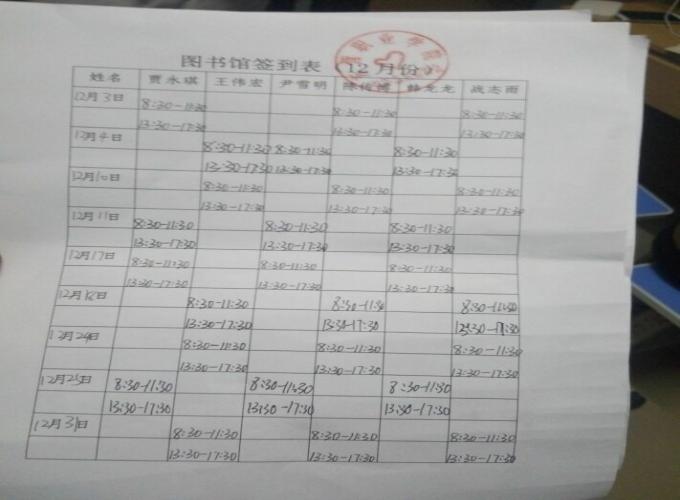 图书馆签到表（12月份）
职业学院
姓名 贾永琪 王伟宏 尹雪明 陈传博 韩龙龙 战志雨
12月3日 8:30-11:30 8:30-11:30 8:30-11:30
13:30-17:30 13:30-17:30 13:30-17:30
12月4日 8:30-11:30 8:30-11:30 8:30-11:30
13:30-17:30 13:30-17:30 13:30-17:30
12月10日 8:30-11:30 8:30-11:30 8:30-11:30
13:30-17:30 13:30-17:30 13:30-17:30
12月11日 8:30-11:30 8:30-11:30 8:30-11:30
13:30-17:30 13:30-17:30 13:30-17:30
12月17日 8:30-11:30 8:30-11:30 8:30-11:30
13:30-17:30 13:30-17:30 13:30-17:30
12月18日 8:30-11:30 8:30-11:30 8:30-11:30
13:30-17:30 13:30-17:30 13:30-17:30
12月24日 8:30-11:30 8:30-11:30 8:30-11:30
13:30-17:30 13:30-17:30 13:30-17:30
12月25日 8:30-11:30 8:30-11:30 8:30-11:30
13:30-17:30 13:30-17:30 13:30-17:30
12月31日 8:30-11:30 8:30-11:30 8:30-11:30
13:30-17:30 13:30-17:30 13:30-17:30